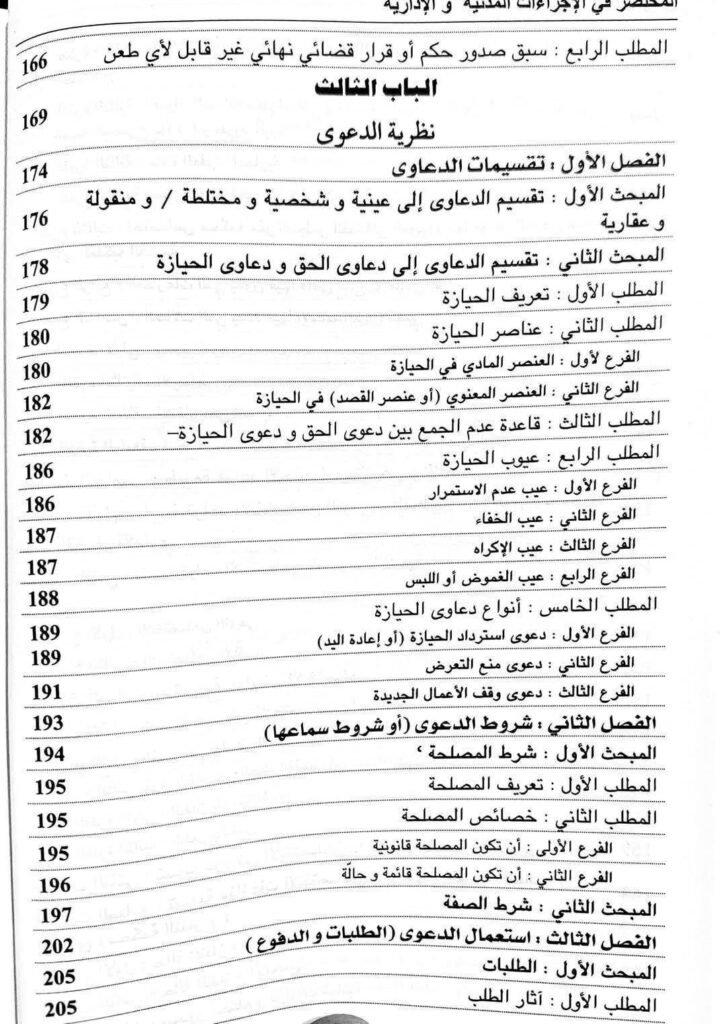 المختصر في الإجراءات المدنية و الإدارية
المطلب الرابع : سبق صدور حكم أو قرار قضائي نهائي غير قابل لأي طعن 166
الباب الثالث
169
نظرية الدعوى
الفصل الأول : تقسيمات الدعاوى 174
المبحث الأول : تقسيم الدعاوى إلى عينية و شخصية و مختلطة / و منقولة
و عقارية 176
المبحث الثاني : تقسيم الدعاوى إلى دعاوى الحق و دعاوى الحيازة 178
المطلب الأول : تعريف الحيازة 179
المطلب الثاني : عناصر الحيازة 180
الفرع لأول : العنصر المادي في الحيازة 180
الفرع الثاني : العنصر المعنوي (أو عنصر القصد) في الحيازة 182
المطلب الثالث : قاعدة عدم الجمع بين دعوى الحق و دعوى الحيازة– 182
المطلب الرابع : عيوب الحيازة 186
الفرع الأول : عيب عدم الاستمرار 186
الفرع الثاني : عيب الخفاء 187
الفرع الثالث : عيب الإكراه 187
الفرع الرابع : عيب الغموض أو اللبس 188
المطلب الخامس : أنواع دعاوى الحيازة 189
الفرع الأول : دعوى استرداد الحيازة (أو إعادة اليد) 189
الفرع الثاني : دعوى منع التعرض 191
الفرع الثالث : دعوى وقف الأعمال الجديدة
الفصل الثاني : شروط الدعوى (أو شروط سماعها) 193
المبحث الأول : شرط المصلحة ‘ 194
المطلب الأول : تعريف المصلحة 195
المطلب الثاني : خصائص المصلحة 195
الفرع الأولى : أن تكون المصلحة قانونية 195
الفرع الثاني : أن تكون المصلحة قائمة و حالّة 196
المبحث الثاني : شرط الصفة 197
الفصل الثالث : استعمال الدعوى (الطلبات و الدفوع ) 202
المبحث الأول : الطلبات 205
المطلب الأول : آثار الطلب 205